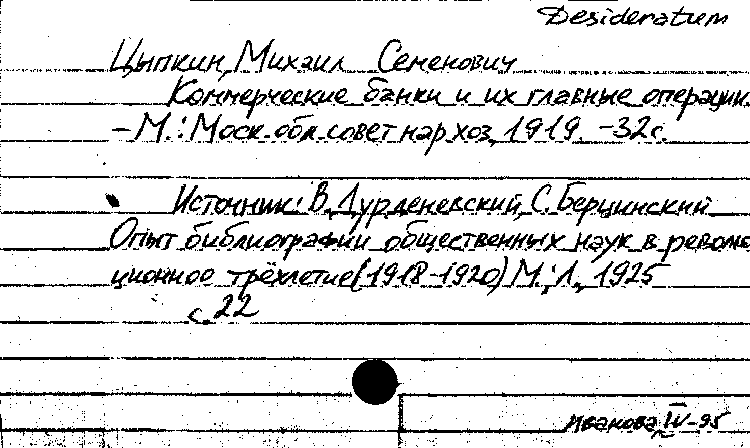 Desideratum
Цыпкин, Михаил Семенович
Коммерческие банки и их главные операции.
– М.: Моск. обл. совет нар хоз, 1919. – 32 с.
Источник: В. Дурденевский, С. Берцинский
Опыт библиографии общественных наук в револю
ционное трёхлетие (1918-1920) М.; Л., 1925
с. 22
Иванова IV-95